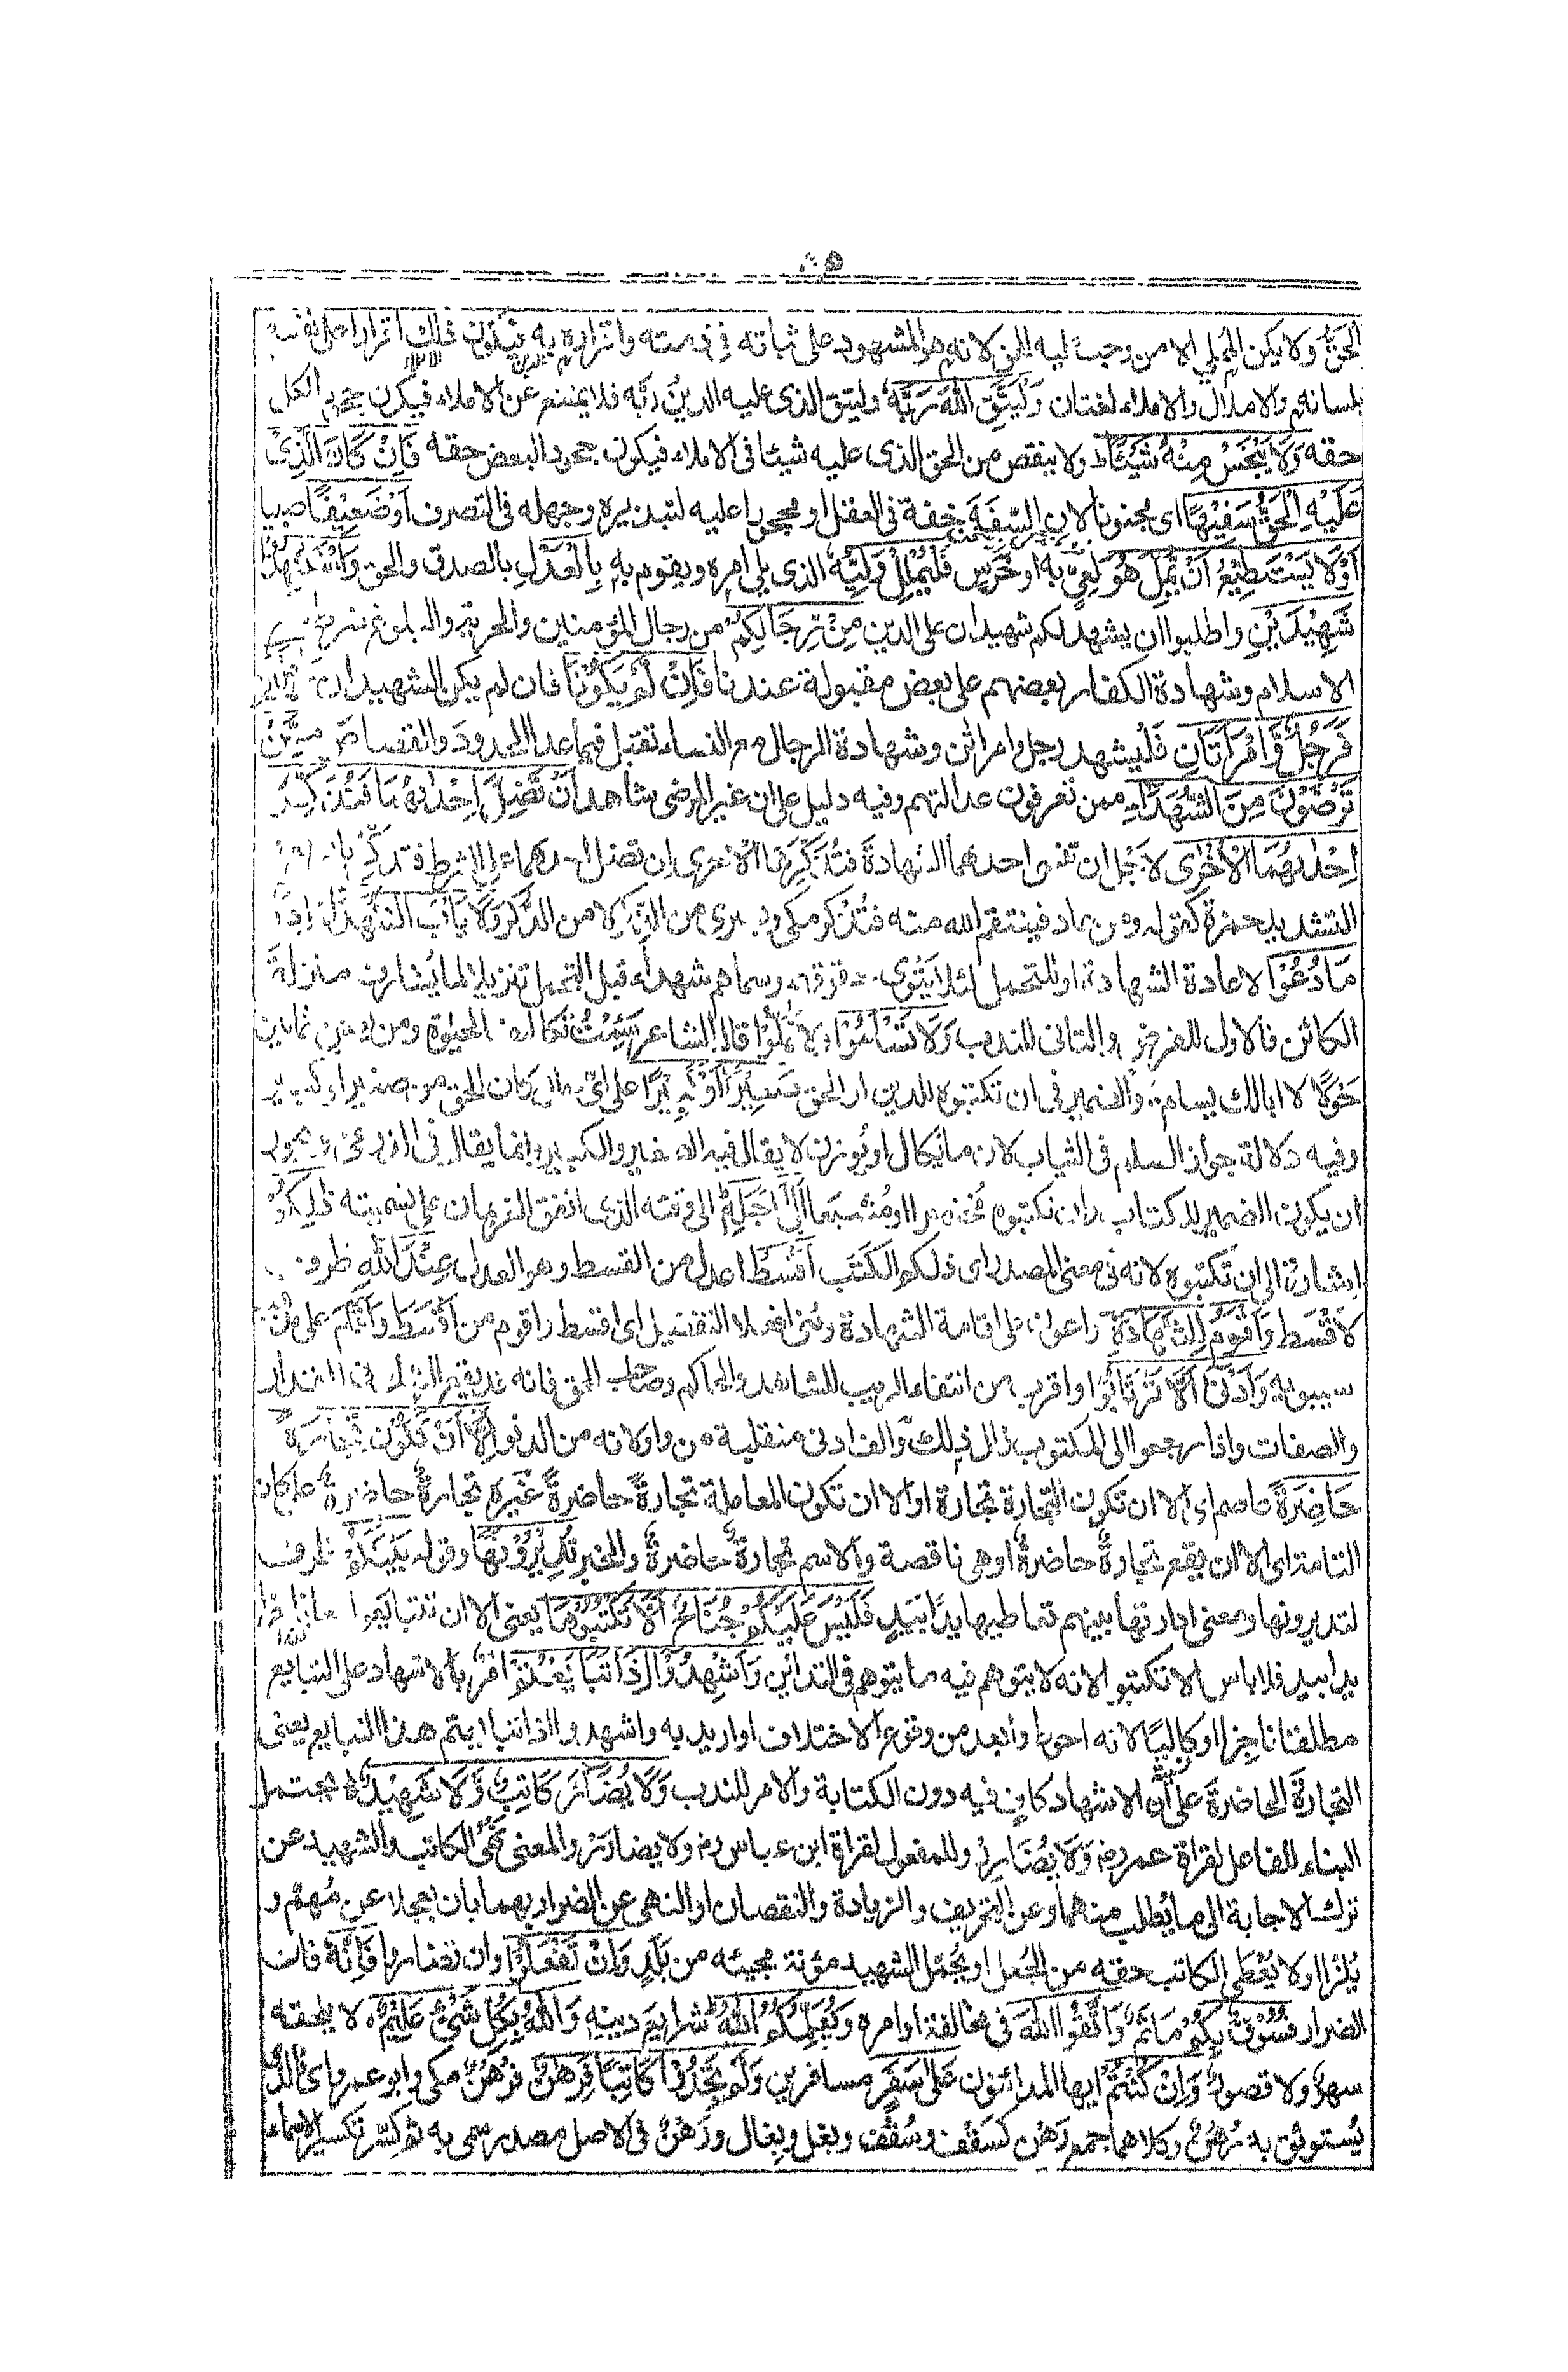 الحَقُّ ولا يكن المُمِلي الا من وجب عليه الحق لانه هو المشهود على ثباته فى ذمته واقراره به فيكون ذلك اقرارا على نفسه
بلسانه والاملال والاملاء لغتان وَلْيَتَّقِ اللهَ رَبَّهٗ وليتق الذى عليه الدين ربّه فلا يمتنع عن الاملاء فيكون جحود الكل
حقه وَلَا يَبْخَسْ مِنْهُ شَيْئًا ط ولا ينقص من الحق الذى عليه شيئا فى الاملاء فيكون جحود البعض حقه فَاِنْ كَانَ الَّذِىْ
عَلَيْهِ الْحَقُّ سَفِيْهًا اى مجنونا لان السَّفَهَ خِفة فى العقل او محجورا عليه لتبذيره وجهله فى التصرف اَوْ ضَعِيْفًا صبيا
اَوْ لَا يَسْتَطِيْعُ اَنْ يُّمِلَّ هُوَ لعِىّ به او خَرَسٍ فَلْيُمْلِلْ وَلِيُّهٗ الذى يلى امره ويقوم به بِالْعَدْلِ بالصدق والحق وَاسْتَشْهِدُوْا
شَهِيْدَيْنِ واطلبوا ان يشهد لكم شهيدان على الدين مِنْ رِّجَالِكُمْ من رجال المؤمنين والحرية والبلوغ شرط مع
الاسلام وشهادة الكفار بعضهم على بعض مقبولة عندنا فَاِنْ لَّمْ يَكُوْنَا فان لم يكن الشهيدان رَجُلَيْنِ
فَرَجُلٌ وَّامْرَاَتَانِ فليشهد رجل وامراتان وشهادة الرجال مع النساء تقبل فيما عدا الحدود والقصاص مِمَّنْ
تَرْضَوْنَ مِنَ الشُّهَدَآءِ ممن تعرفون عدالتهم وفيه دليل على ان غير المرضى شاهد اَنْ تَضِلَّ اِحْدٰىهُمَا فَتُذَكِّرَ
اِحْدٰىهُمَا الْاُخْرٰى لاجل ان تنسى احدهما الشهادة فتُذَكِّرَها الاخرى ان تضل احدهما على الشرط فتذكِّرُ
التشديد حمزة كقوله ومن عاد فينتقم الله منه فتُذْكِر مكى وبصرى من الذِّكر لا من الذَّكر وَلَا يَاْبَ الشُّهَدَآءُ اِذَا
مَا دُعُوْا لاعادة الشهادة او للتحمل لئلا يَتْوى حقوقهم وسماهم شهداء قبل التحمل تنزيلا لما يُشارف منزلة
الكائن فالاول للفرض والثانى للندب وَلَا تَسْئَمُوْا ولا تملّوا قال الشاعر سَئِمْتُ تكاليف الحيوة ومن يعش ثمانين
حَوْلًا لا ابالك يسام والضمير فى ان تكتبوه للدين او الحق صَغِيْرًا اَوْ كَبِيْرًا على اىّ حال كان الحق من صغير او كبير
وفيه دلالة جواز السلم فى الثياب لان ما يُكال او يُوزن لا يقال فيه الصغير والكبير وانما يقال فى الذرعى ويجوز
ان يكون الضمير للكتاب وان تكتبوه مُختصرا او مُشبَعا اِلٰٓى اَجَلِهٖ الى وقته الذى اتفق الغريمان على تسميته ذٰلِكُمْ
اشارة الى ان تكتبوه لانه فى معنى المصدر اى ذلكم الكَتْب اَقْسَطُ اعدل من القسط وهو العدل عِنْدَ اللهِ ظرف
لاَقْسَط وَاَقْوَمُ لِلشَّهَادَةِ واعون على اقامة الشهادة وبُنى افعلا التفضيل اى اقسط واقوم من اَقْسَط واَقام على مذهب
سيبويه وَاَدْنٰٓى اَلَّا تَرْتَابُوْٓا واقرب من انتفاء الريب للشاهد والحاكم وصاحب الحق فانه قد يقع الشك فى المقدار
والصفات واذا رجعوا الى المكتوب زال ذلك والف ادنى منقلبة من واو لانه من الدنو اِلَّآ اَنْ تَكُوْنَ تِجَارَةً
حَاضِرَةً عاصم اى الا ان تكون التجارة تجارة او الا ان تكون المعاملة تجارةً حاضرةً غيره تجارةٌ حاضرةٌ على كان
التامة اى الا ان يقع تجارةٌ حاضرةٌ او هى ناقصة والاسم تجارةٌ حاضرةٌ والخبر تُدِيْرُوْنَهَا وقوله بَيْنَكُمْ ظرف
لتديرونها ومعنى ادارتها بينهم تعاطيها يدًا بيَدٍ فَلَيْسَ عَلَيْكُمْ جُنَاحٌ اَلَّا تَكْتُبُوْهَا يعنى الا ان تتبايعوا
يدا بيدٍ فلا باس الا تكتبوا لانه لا يتوهم فيه ما يتوهم فى التداين وَاَشْهِدُوْٓا اِذَا تَبَايَعْتُمْ امْر بالاشهاد على التبايع
مطلقا ناجزا او كالِئًا لانه احوط وابعد من وقوع الاختلاف او اريد به واشهدوا اذا تبايعتم هذا التبايع يعنى
التجارةَ الحاضرةَ على ان الاشهاد كافٍ فيه دون الكتابة والامر للندب وَلَا يُضَآرَّ كَاتِبٌ وَّلَا شَهِيْدٌ يحتمل
البناء للفاعل لقراة عمر رض وَلَا يُضَارِرْ وللمفعول لقراة ابن عباس رض ولا يضارَرْ والمعنى نَهْى الكاتب والشهيد عن
ترك الاجابة الى ما يُطلب منهما وعن التحريف والزيادة والنقصان او النهى عن الضرار بهما بان يعجلا عن مُهِمّ و
يُلَزَّا اولا يُعْطَى الكاتب حقه من الجُعل او يُحمّل الشهيد مؤنة مجيئه من بَلَدٍ وَاِنْ تَفْعَلُوْا وان تضاروا فَاِنَّهٗ فان
الضرار فُسُوْقٌ بِكُمْ مَاثَم وَاتَّقُوا اللهَ فى مخالفة اوامره وَيُعَلِّمُكُمُ اللهُ ط شرايع دينه وَاللهُ بِكُلِّ شَىْءٍ عَلِيْمٌ لا يلحقه
سهوٌ ولا قصورٌ وَاِنْ كُنْتُمْ ايها المداينون عَلٰى سَفَرٍ مسافرين وَلَمْ تَجِدُوْا كَاتِبًا فَرِهٰنٌ فَرُهُنٌ مكى وابو عمرو اى فالذى
يُستوثق به رُهُنٌ وكلاهما جمع رَهْن كسَقْف وسُقُف وبغل وبِغال ورَهْنٌ فى الاصل مصدر سمى به ثم كُسّر تكسير الاسماء